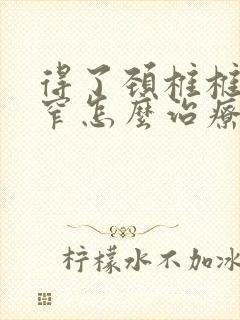 得了颈柱柱
窄怎麼治療
柠檬水不加冰